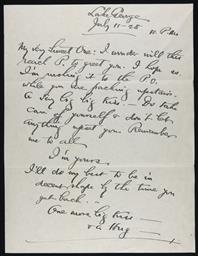 Lake George
July 11-28 10 P.M.
My very Sweet One: I wonder will this
reach P. to greet you. I hope so.
I'm rushing it to the P.O.
while you are packing upstairs.
a big big kiss — Do take
Care of yourself & don't let
anything upset you. Remember
me to all
I'm yours
I'll do my best to be in
decent shape by the time you
get back. —
One more big kiss —
& a Hug —